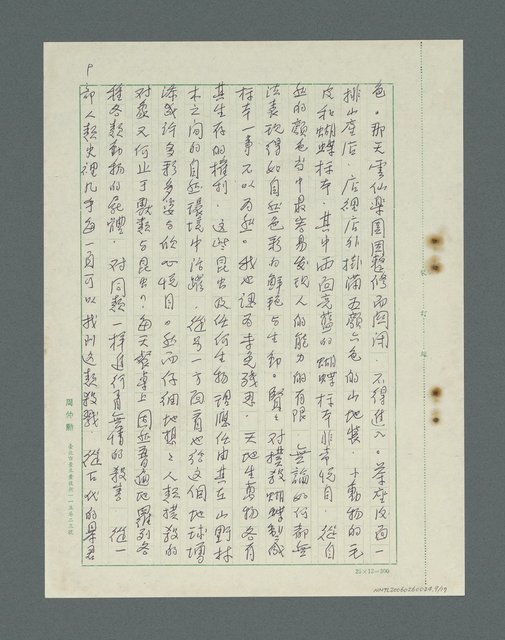 色。那天雲仙樂園因整修而關閉，不得進入。茶座後面一
排山產店，店裡店外掛滿五顏六色的山地裝、小動物的毛
皮和蝴蝶標本。其中兩面亮藍的蝴蝶標本非常悅目。從自
然的顏色當中最容易發現人的能力的有限，無論如何都無
法表現得如自然色彩的鮮艷與生動。賢賢對撲殺蝴蝶製成
標本一事不以為然。我也認為未免殘忍，天地生萬物各有
其生存的權利，這些昆蟲及任何生物理應任由其在山野林
木之間的自然環境中活躍，從另一方面看也給這個地球增
添或許多彩多姿與欣心悅目。然而仔細地想想人類撲殺的
對象又何止于獸類與昆虫？每天餐桌上固然普遍地羅列各
種各類動物的屍體，對同類一樣進行着無情的殺害，從一
部人類史裡几乎每一頁可以找到这類殺戮，從古代的暴君
P
裝訂線
周仲勳
25×12=300
NMTL20060260024.9/17